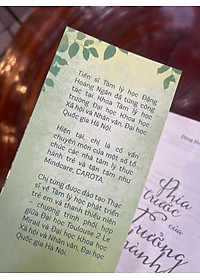 Tiến sĩ Tâm lý học Đặng
Hoàng Ngân đã từng công
tác tại Khoa Tâm lý học
trường Đại học Khoa học
Xã hội và Nhân văn, Đại học
Quốc gia Hà Nội.
Hiện tại, chị là cố vấn
chuyên môn của một số tổ
chức các nhà tâm lý thực
hành trẻ và tận tâm như
Mindcare, CAROTA.
Chị từng được đào tạo Thạc
sĩ về Tâm lý học phát triển
trẻ em và thanh thiếu niên
- chương trình phối hợp
giữa Đại học Toulouse 2 Le
Mirail và Đại học Khoa học
Xã hội và Nhân văn, Đại học
Quốc gia Hà Nội.
Phía
trước
của